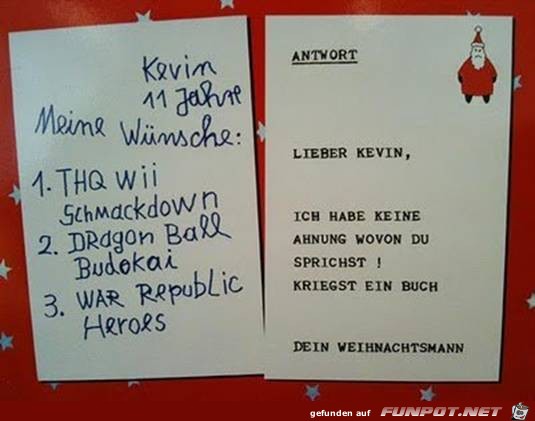 Kevin
11 Jahre
Meine Wünsche:
1. THQ Wii
Schmackdown
2. DRagon Ball
Budokai
3. WAR Republic
Heroes
ANTWORT
LIEBER KEVIN,
ICH HABE KEINE
AHNUNG WOVON DU
SPRICHST !
KRIEGST EIN BUCH
DEIN WEIHNACHTSMANN
gefunden auf FUNPOT.NET